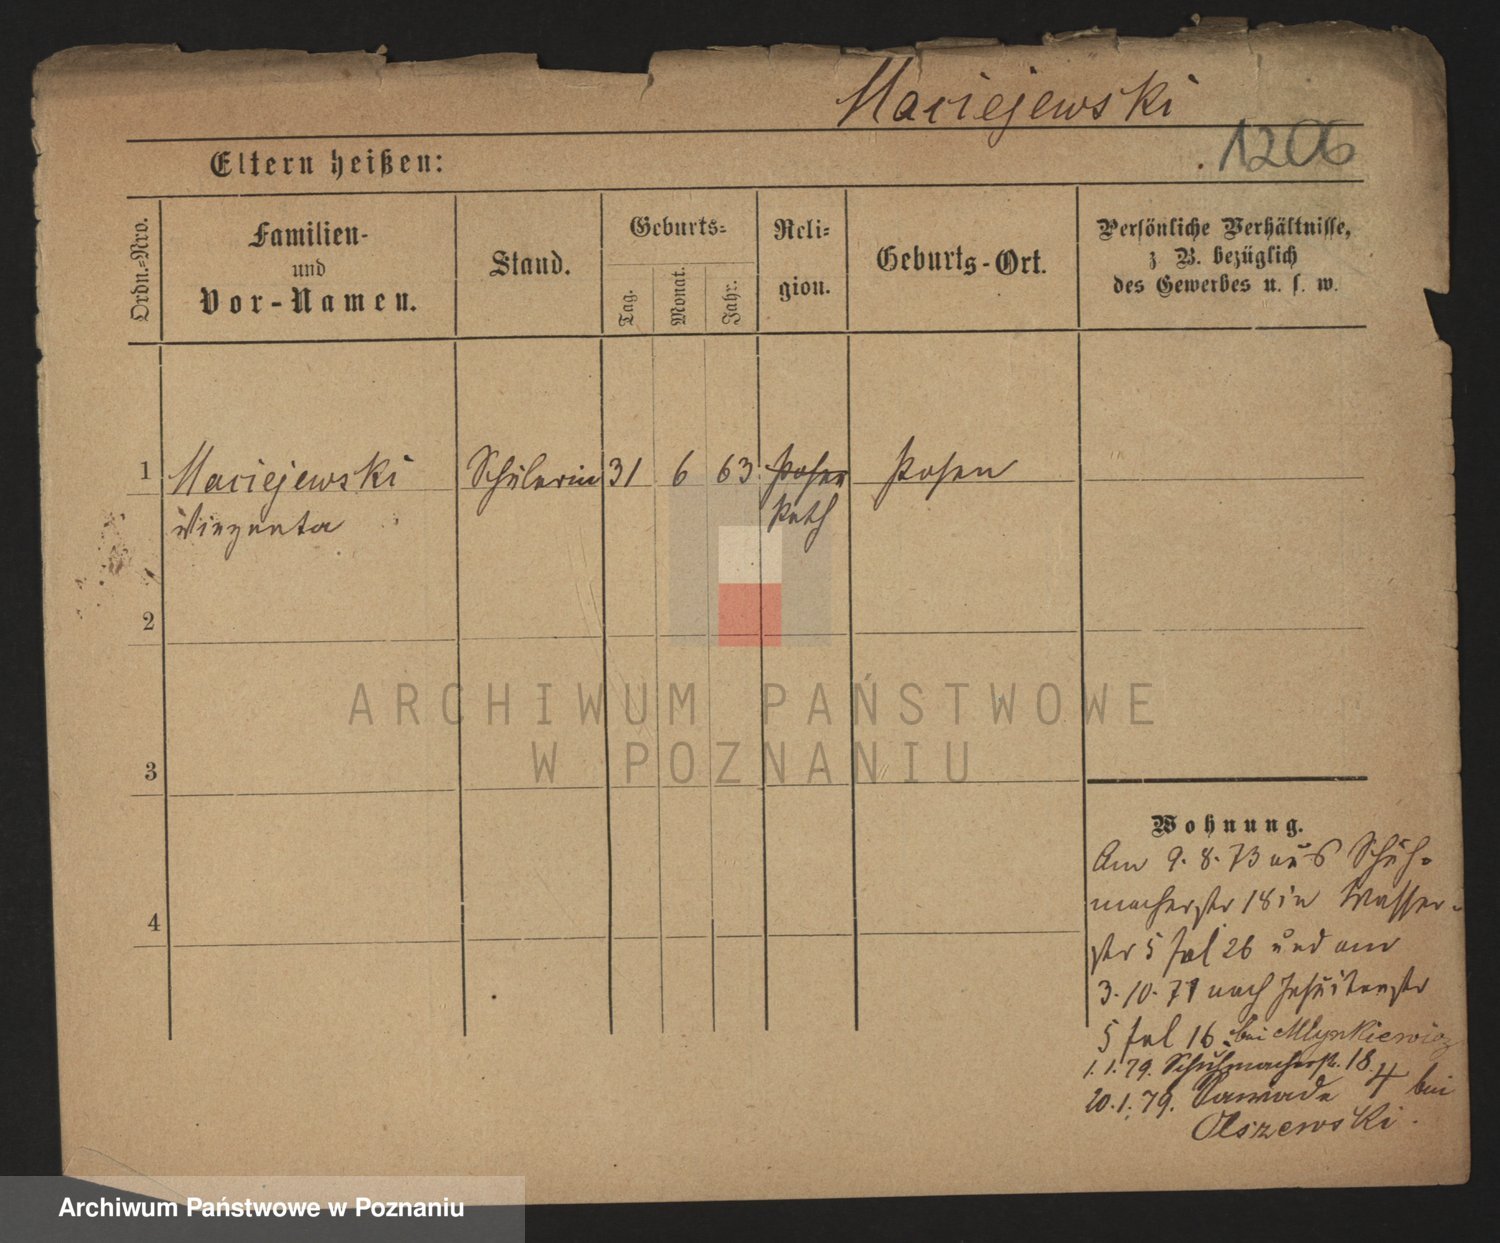 Maciejewski
1206
Eltern heißen:
Ordn.=Nro.
Familien-
und
Vor-Namen.
Stand.
Geburts=
Tag.
Monat.
Jahr.
Reli=
gion.
Geburts-Ort.
Persönliche Verhältnisse,
z B. bezüglich
des Gewerbes u. s. w.
1 Maciejewski Schülerin 31 6 63 Posen Posen
Vinzenta Kath
2
3
4
ARCHIWUM PAŃSTWOWE
W POZNANIU
Wohnung.
Am 9. 8. 73 aus Schuh-
macherstr 18 in Wasser-
str 5 fal 26 und am
3. 10. 71 nach Jesuitenstr
5 fal 16 bei Młynkiewicz
1. 1. 79. Schuhmacherstr. 18.
20. 1. 79. Zawade 4 bei
Olszewski.
Archiwum Państwowe w Poznaniu